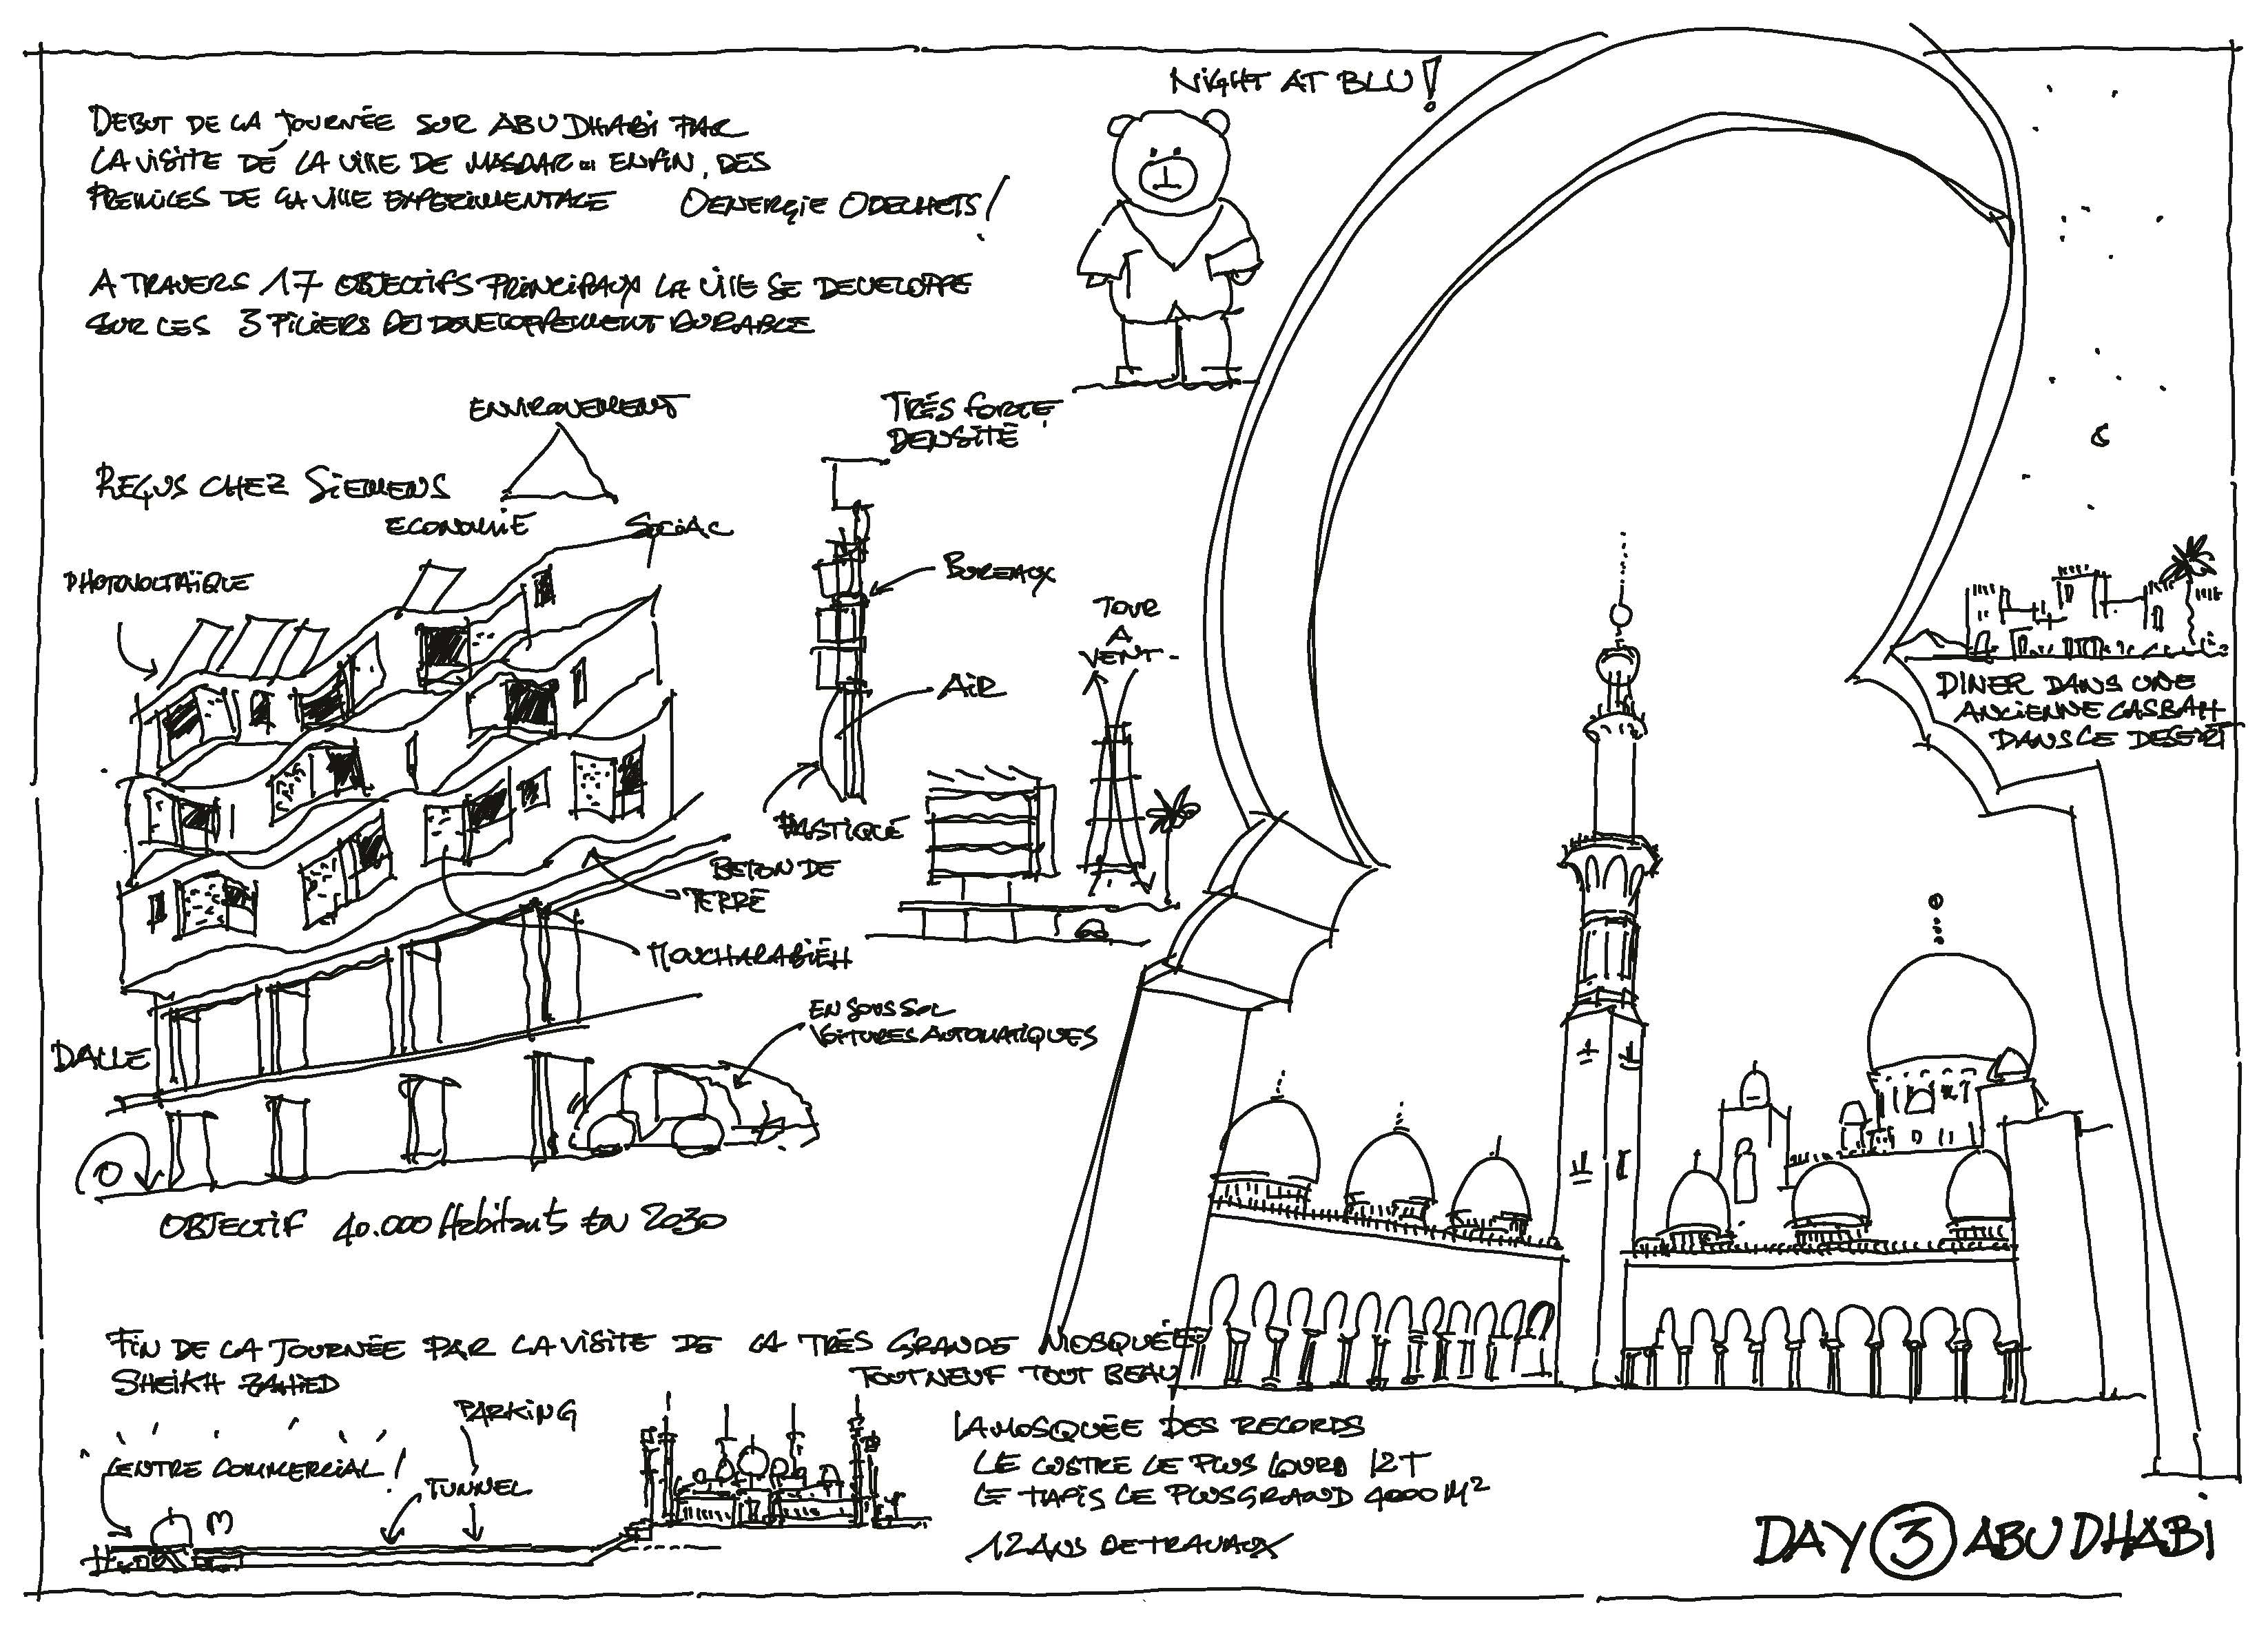 NIGHT AT BLU !
DEBUT DE LA JOURNÉE SUR ABU DHABI PAR
LA VISITE DE LA VILLE DE MASDAR ENFIN, DES
PREMICES DE LA VILLE EXPERIMENTALE 0ENERGIE 0DECHETS !
A TRAVERS 17 OBJECTIFS PRINCIPAUX LA VILLE SE DEVELOPPE
SUR LES 3 PILIERS DU DEVELOPPEMENT DURABLE
ENVIRONEMENT
REÇUS CHEZ SIEMENS
ECONOMIE
SOCIAL
TRÉS FORTE
DENSITÉ
PHOTOVOLTAÏQUE
BUREAUX
AIR
TOUR
A
VENT
PLASTIQUE
BETON DE
TERRE
MOUCHARABIÉH
DINER DANS UNE
ANCIENNE CASBAH
DANS LE DESERT
EN SOUS SOL
VOITURES AUTOMATIQUES
DALLE
OBJECTIF 40.000 Habitants EN 2030
FIN DE LA JOURNÉE PAR LA VISITE DE LA TRÉS GRANDE MOSQUÉE
SHEIKH ZAHIED
TOUT NEUF TOUT BEAU
PARKING
CENTRE COMMERCIAL !
TUNNEL
LA MOSQUÉE DES RECORDS
LE LUSTRE LE PLUS LOURD 12T
LE TAPIS LE PLUS GRAND 4000 M²
12 ANS DE TRAVAUX
DAY 3 ABU DHABI